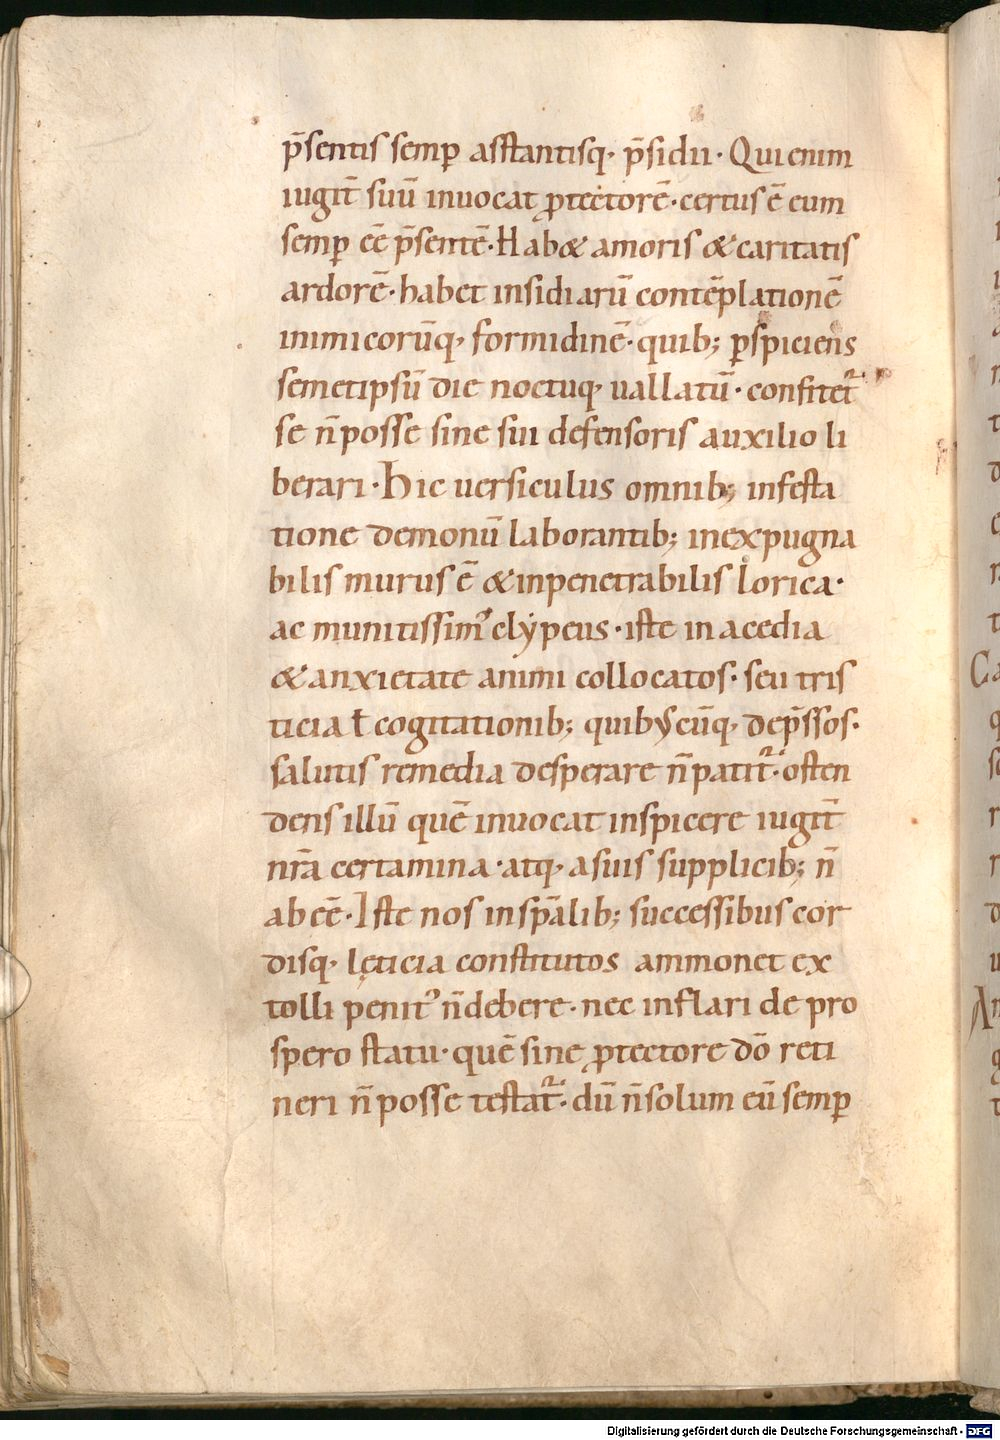 p̄sentis semꝑ asstantisq· p̄sidii · Qui enim
iugit̄ suū inuocat ꝓtectorē · certus ē eum
semꝑ eē p̄sentē · Hab& amoris & caritatis
ardorē · habet insidiarū contēplationē
inimicorūq· formidinē · quib; ꝑspiciens
semetipsū die noctuq· uallatū · confitet᷑
se n̄ posse sine sui defensoris auxilio li
berari · Hic uersiculus omnib; infesta
tione demonū laborantib; inexpugna
bilis murus ē & inpenetrabilis lorica ·
ac munitissim᾽ clẏpeus · iste in acedia
& anxietate animi collocatos · seu tris
ticia ł cogitationib; quibuscūq· dep̄ssos ·
salutis remedia desperare n̄ patit᷑ · osten
dens illū quē inuocat inspicere iugit̄
nr̄a certamina · atq· a suis supplicib; n̄
ab eē · Iste nos in sp̄alib; successibus cor
disq· lęticia constitutos ammonet ex
tolli penit᾽ n̄ debere · nec inflari de pro
spero statu · quē sine ꝓtectore dō reti
neri n̄ posse testat᷑ · dū n̄ solum eū semꝑ
Digitalisierung gefördert durch die Deutsche Forschungsgemeinschaft - DFG